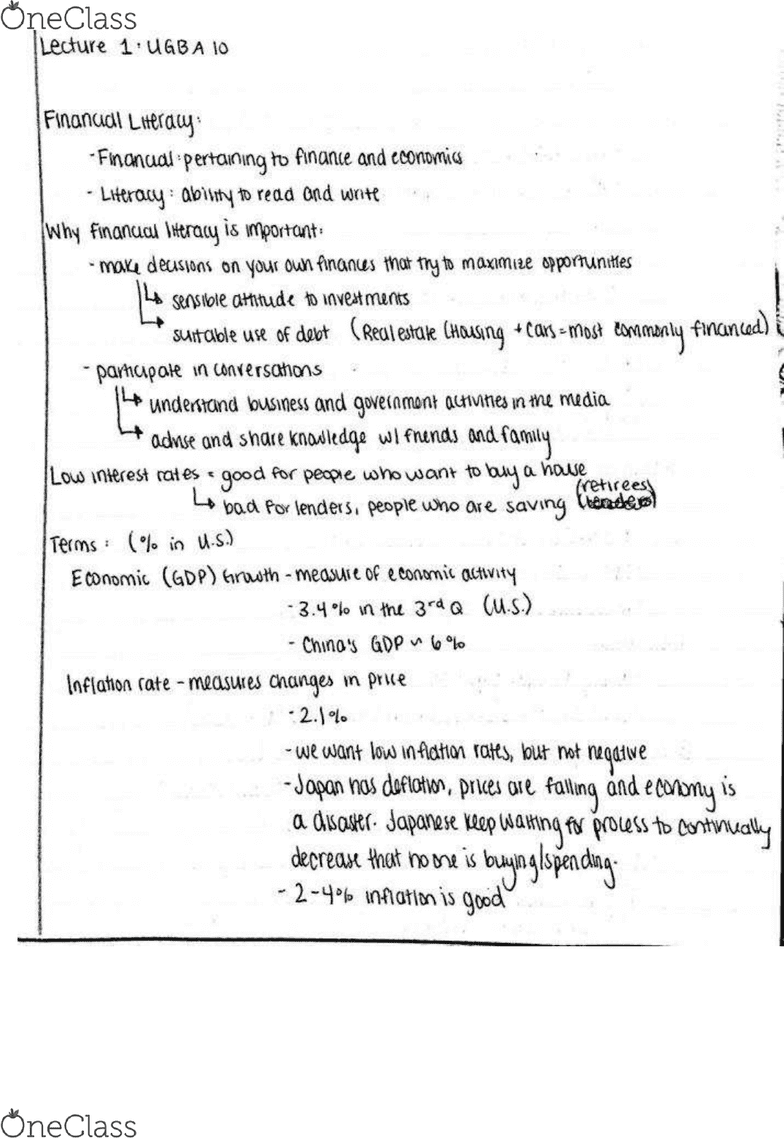 OneClass
Lecture 1: UGBA 10
Financial Literacy:
- Financial: pertaining to finance and economics
- Literacy: ability to read and write
Why financial literacy is important:
- make decisions on your own finances that try to maximize opportunities
↳ sensible attitude to investments
↳ suitable use of debt (Real estate (Housing + Cars = most commonly financed)
- participate in conversations
↳ understand business and government activities in the media
↳ advise and share knowledge w/ friends and family
Low interest rates = good for people who want to buy a house
↳ bad for lenders, people who are saving (retirees)
Terms: (% in U.S.)
Economic (GDP) Growth - measure of economic activity
- 3.4% in the 3rd Q (U.S.)
- China's GDP ~ 6%
Inflation rate - measures changes in price
- 2.1%
- we want low inflation rates, but not negative
- Japan has deflation, prices are falling and economy is
a disaster. Japanese keep waiting for process to continually
decrease that no one is buying/spending.
- 2-4% inflation is good
OneClass